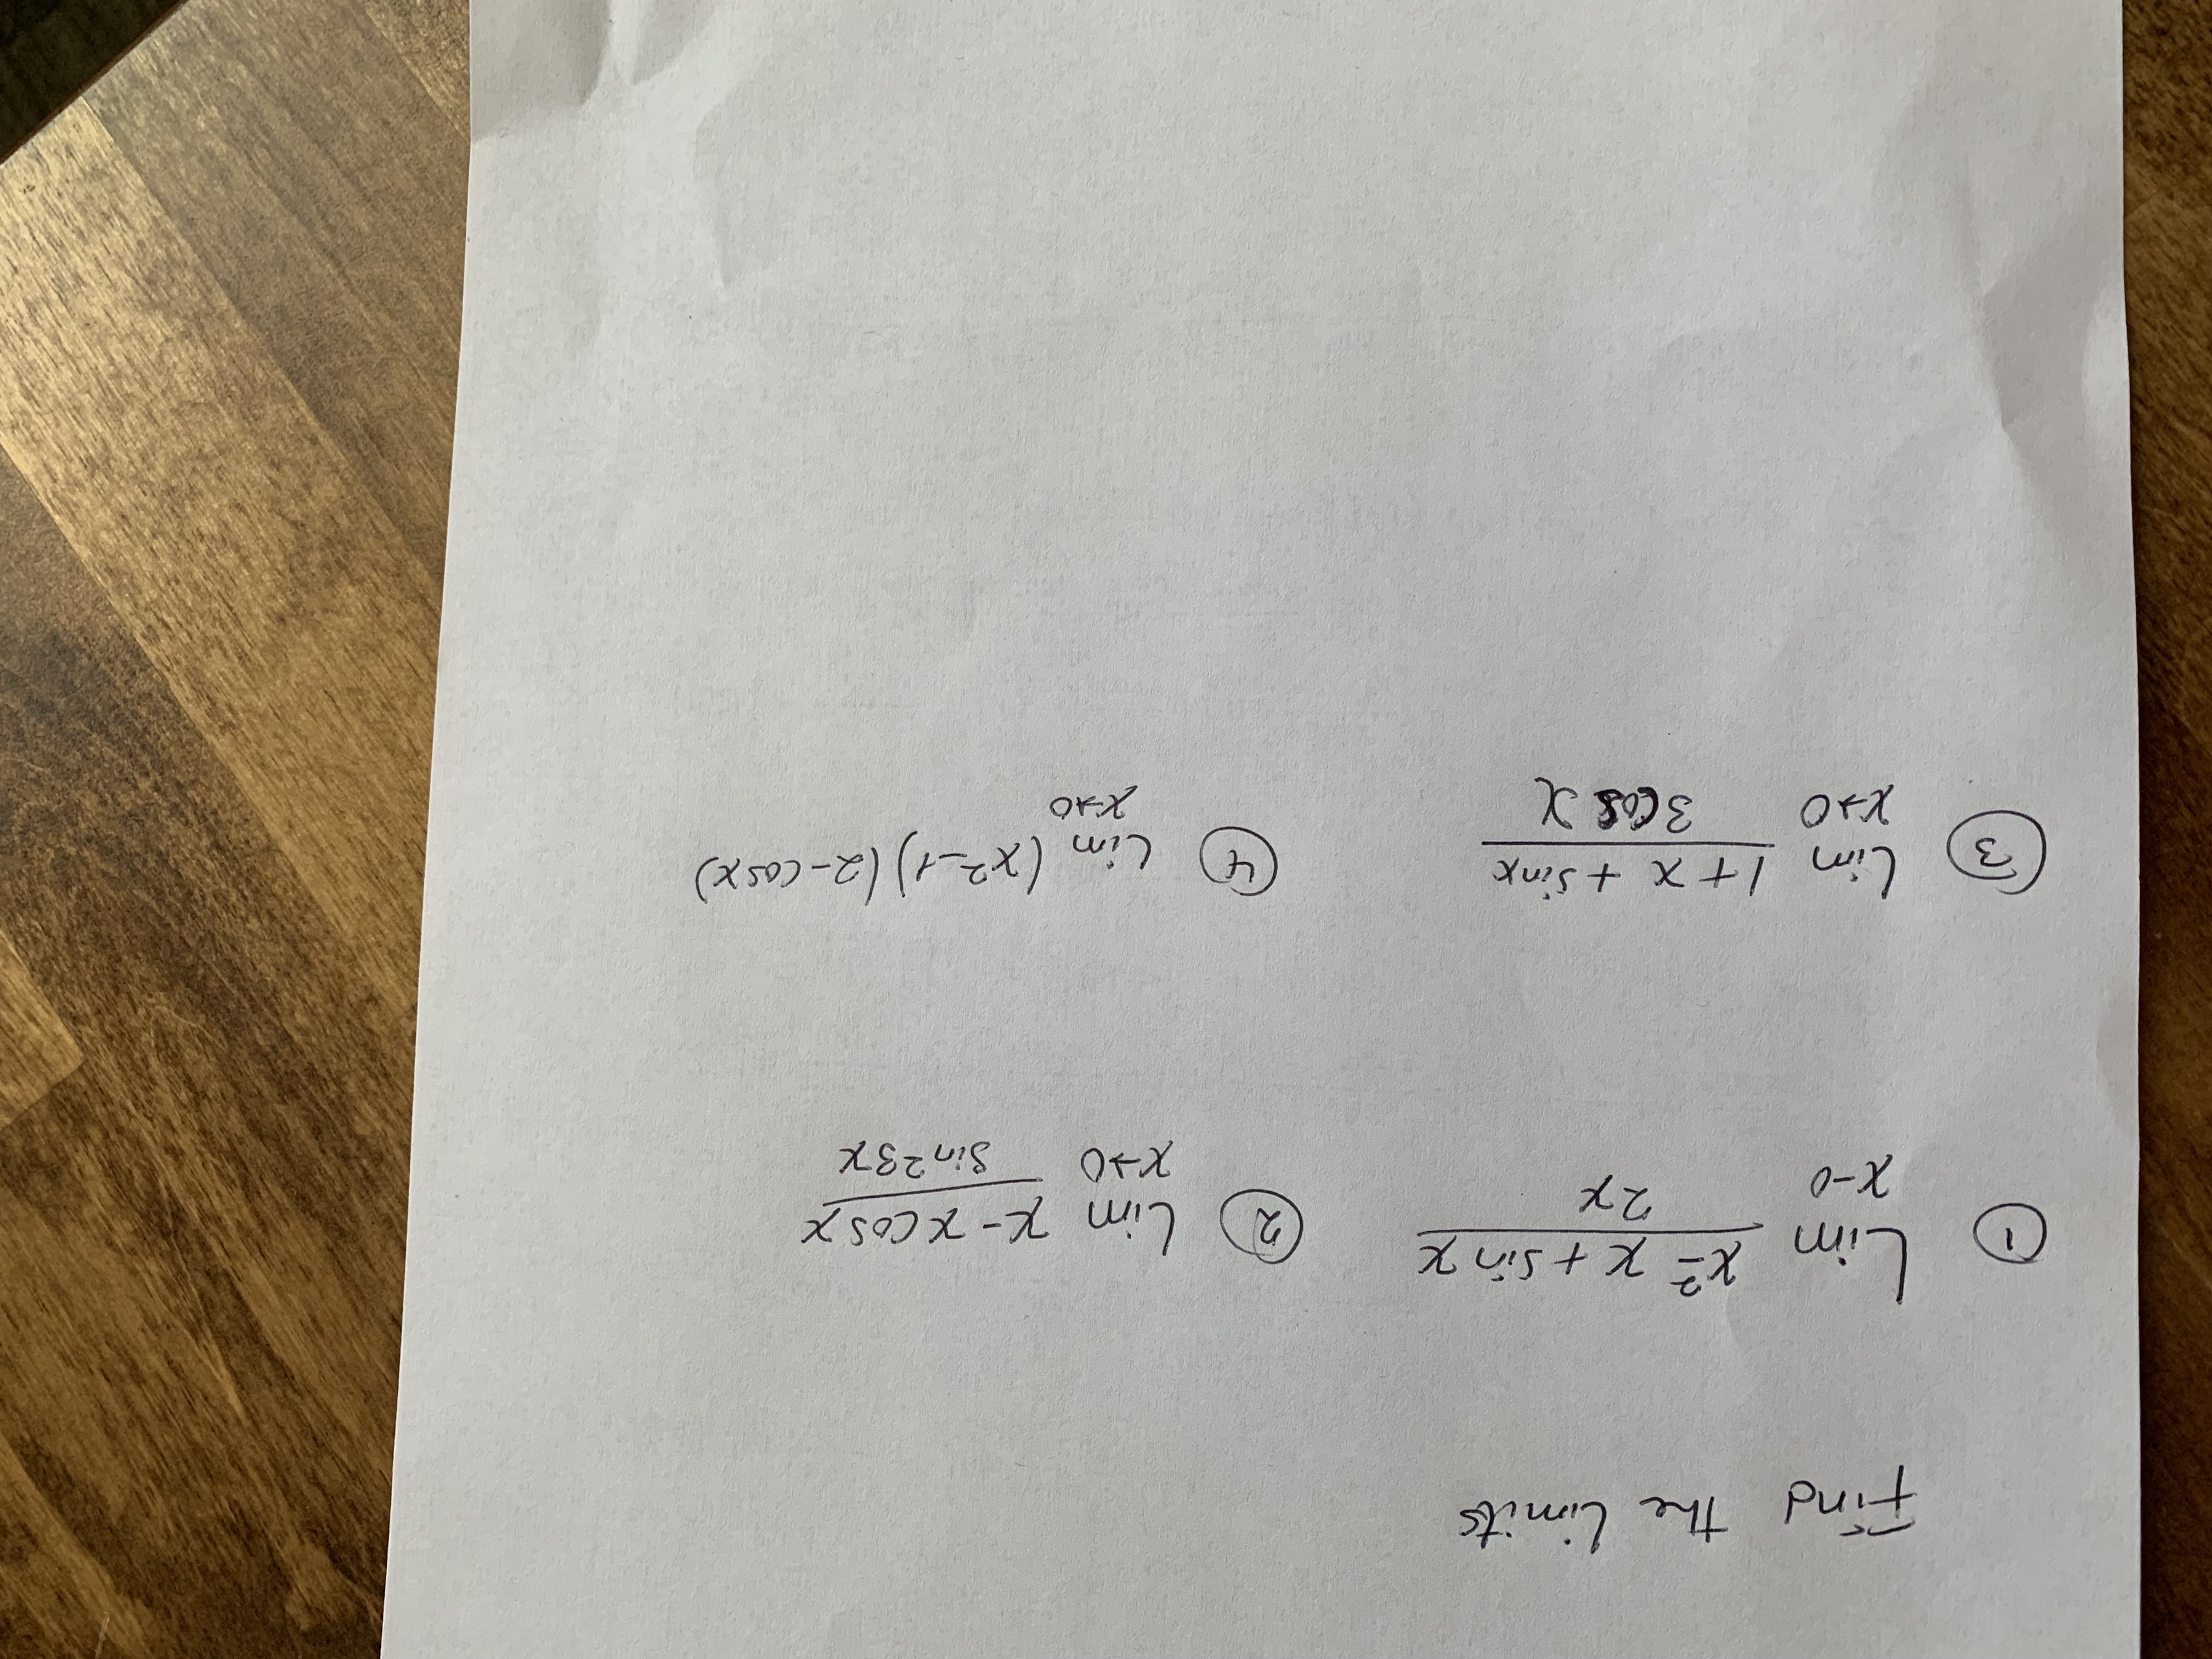 Find the Limits
① Lim x→0 (x² - x + sin x)/(2x)
② Lim x→0 (x - x cos x)/(sin² 3x)
③ Lim x→0 (1 + x + sin x)/(3 cos x)
④ Lim x→0 (x² - 1)(2 - cos x)